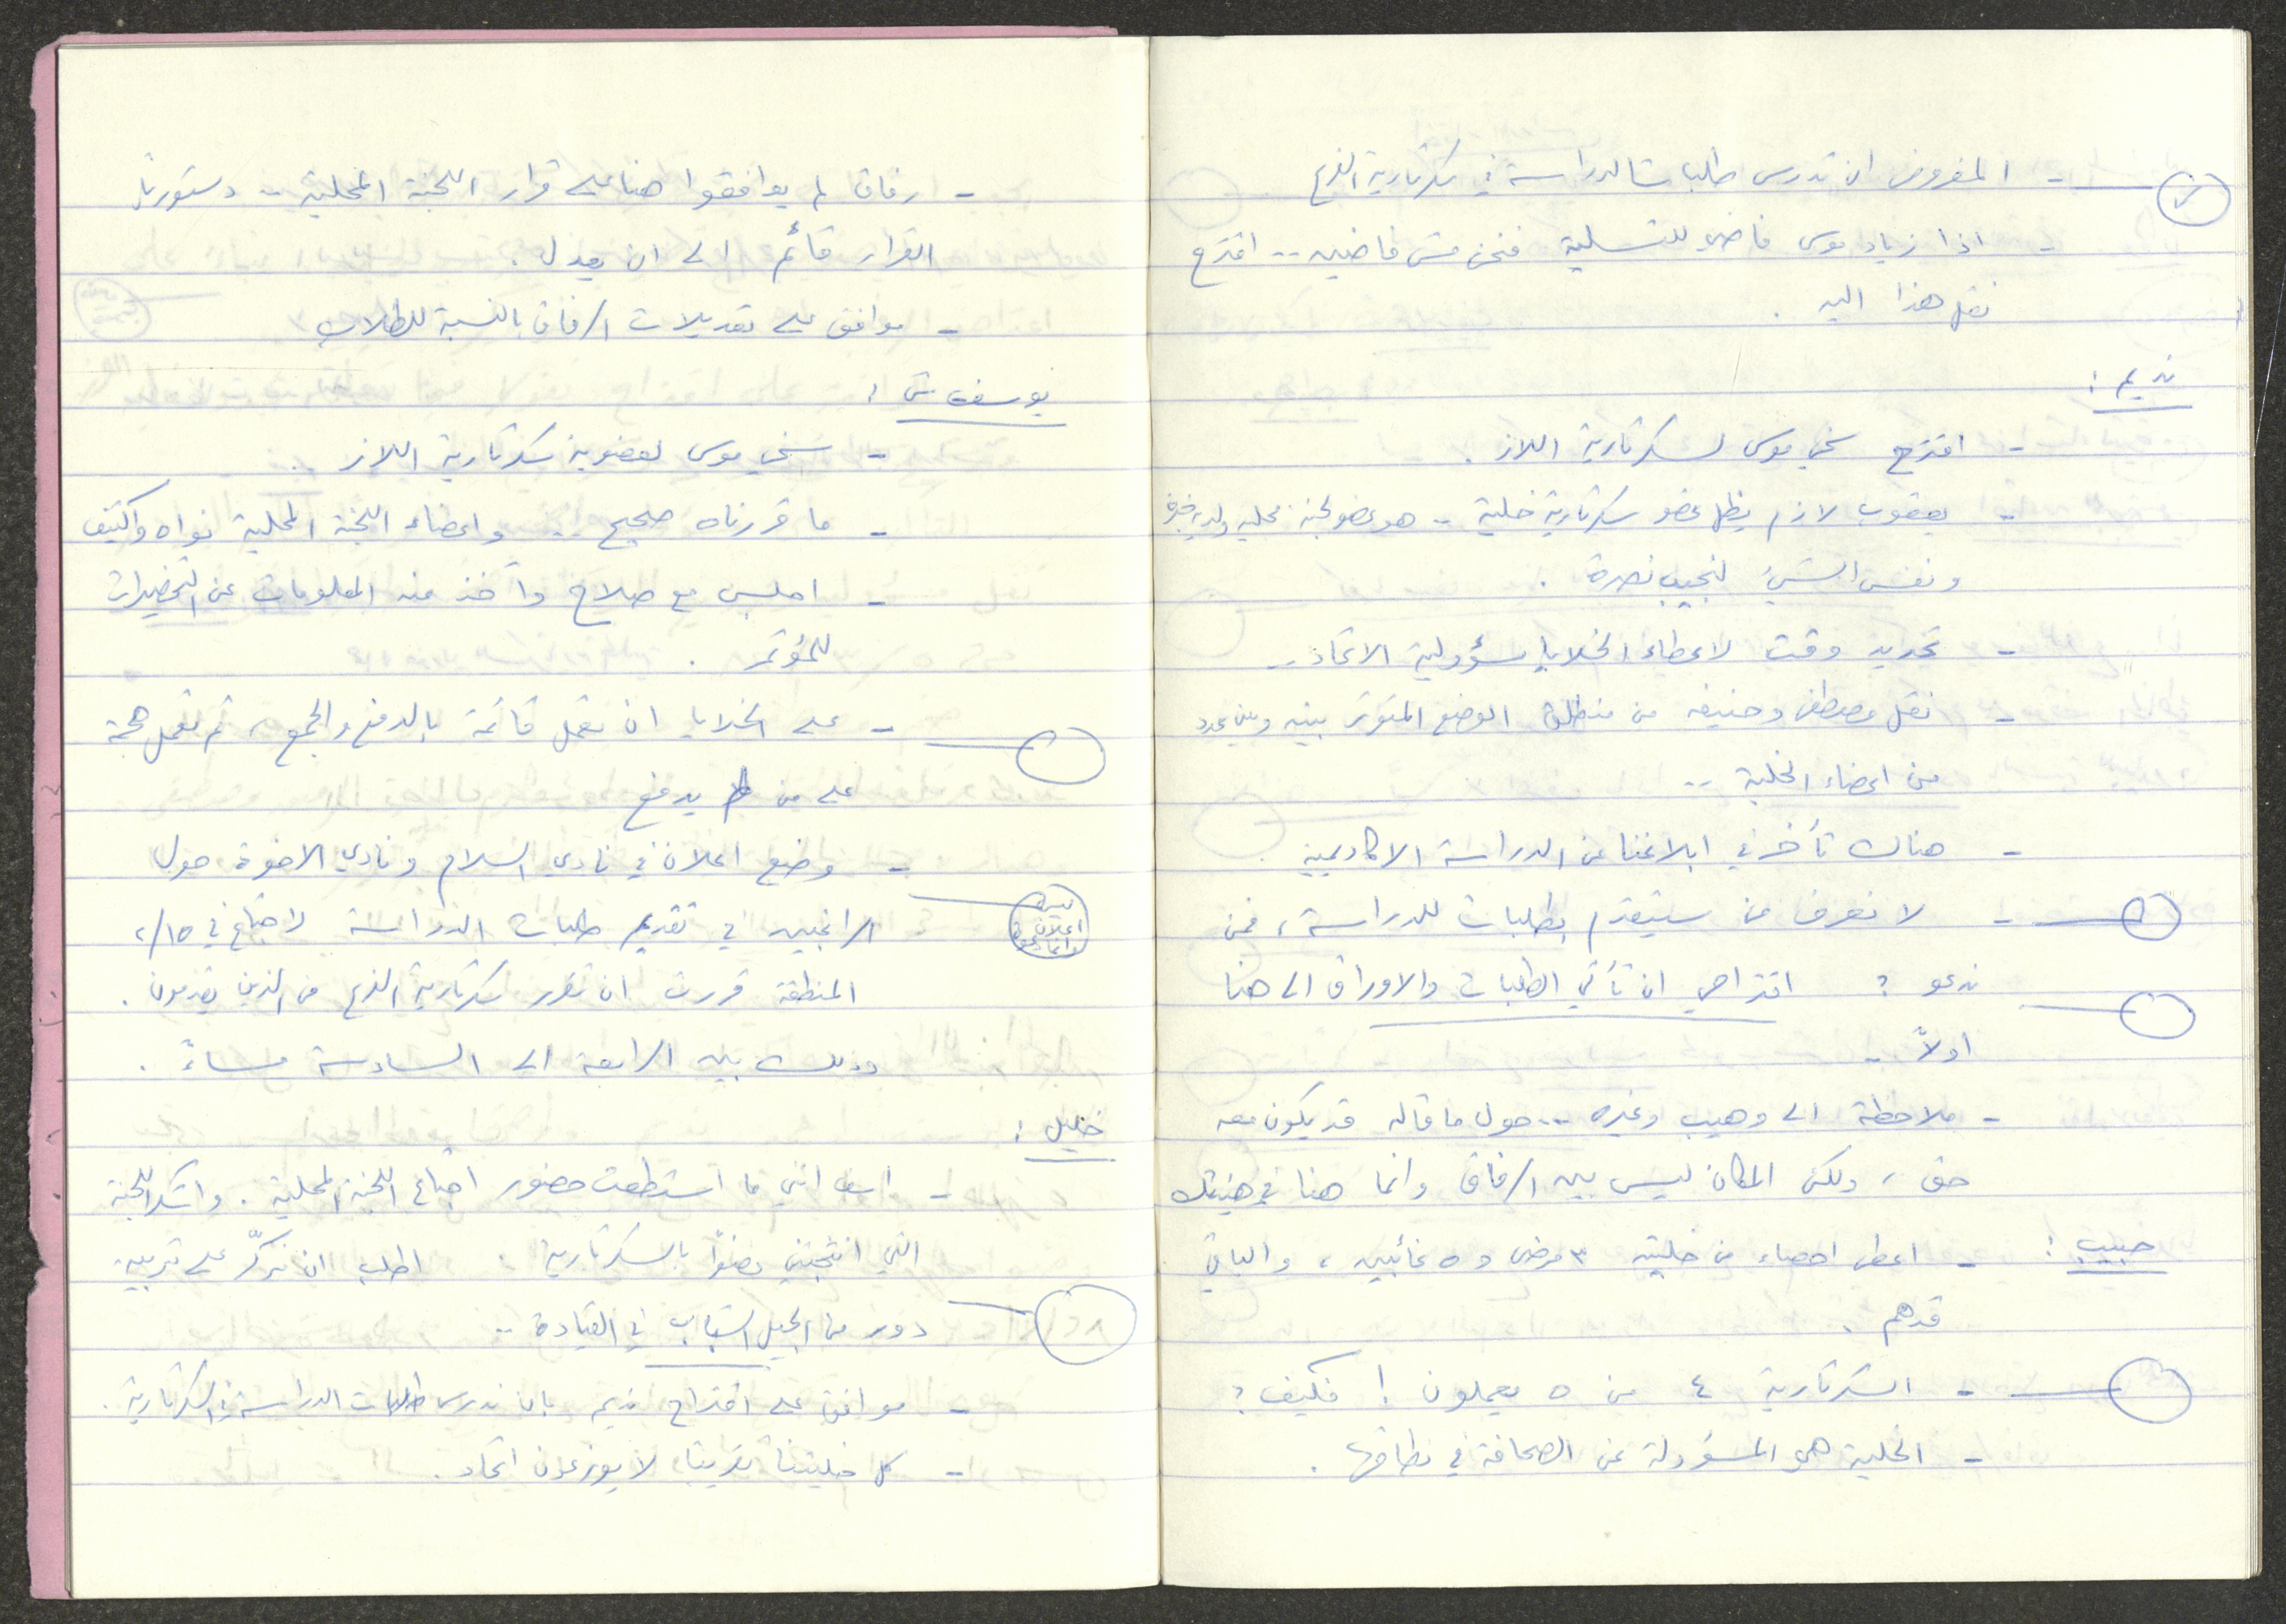 - المفروض ان تدرس طلبات الدراسة في سكرتارية الفرع
- اذا زياد موسى فاضي للتسلية فنحن مش فاضيين .. اقترح
نقل هذا اليه .
نديم :
- اقترح سخي موسى لسكرتارية اللاز .
- يعقوب لازم يظل عضو سكرتارية خلية - هو عضو لجنة محلية ولديه خبرة
ونفس الشيء لنجيب نصرة .
- تحديد وقت لاعطاء الخلايا مسؤولية الاتحاد ..
- نقل مصطفى وحنيفه من منطلق الوضع المتوتر بينه وبين عدد
من اعضاء الخلية ..
- هناك تأخر في ابلاغنا عن الدراسة الاكاديمية
- لا نعرف من سيتقدم بطلبات للدراسة ، فمن
ندعو ؟ اقتراحي ان تأتي الطلبات والاوراق الى هنا
اولاً -
- ملاحظة الى وهيب وغيره .. حول ما قاله قد يكون معه
حق ، ولكن المكان ليس بين الرفاق وانما هنا في هيئتك
حبيب : - اعطى احصاء من خليته ٣ مرضى و ٥ غائبين ، والباقي
قدهم .
- السكرتارية ٤ من ٥ يعملون ! فكيف ؟
- الخلية هي المسؤولة عن الصحافة في نطاقها .
- ارفاق لم يوافقوا هنا على قرار اللجنة المحلية .. دستوريا
القرار قائم الى ان يعدل .
- موافق على تعديلات الرفاق بالنسبة للطلاب
يوسف ش :
- سخي موسى لعضوية سكرتارية اللاز .
- ما قررناه صحيح .. واعضاء اللجنة المحلية نواه واكتف
- اجلس مع صلاح وآخذ منه المعلومات عن التحضيرات
للمؤتمر .
- على الخلايا ان تعمل قائمة بالدفع والجمع ، ثم نعمل حملة
على من لم يدفع
- وضع اعلان في نادي السلام ونادي الاخوة حول
اعلان
الراغبين في تقديم طلبات الدراسة لاجتماع في ٢/١٥
المنطقة قررت ان تقرر سكرتارية الفرع من الذين يقدمون .
وذلك بين الرابعة الى السادسة مساءً .
خليل :
- اسف انني ما استطعت حضور اجتماع اللجنة المحلية . واشكر اللجنة
التي انتخبتني عضواً بالسكرتارية . اطلب ان نركّز على تدريبه
دور من الجيل الشباب في القيادة ..
- موافق على اقتراح نديم بان ندرس طلبات الدراسة في السكرتارية .
- كل خليتنا تقريبا لا يوزعون اتحاد .